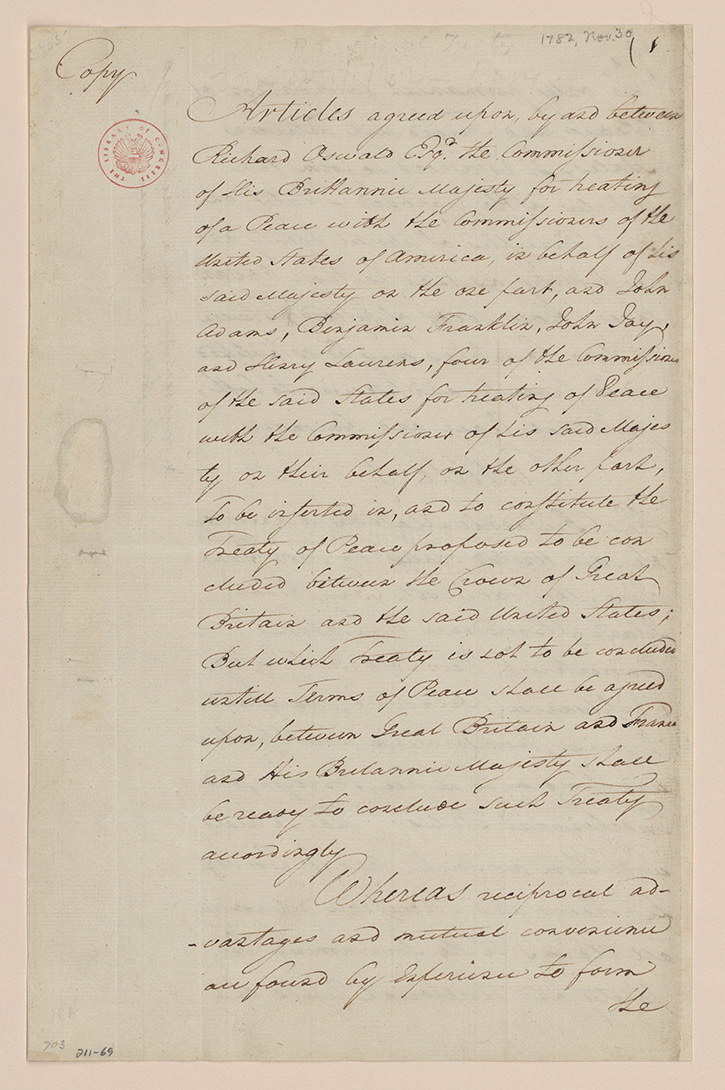 1782, Nov. 30
(1
Copy
THE LIBRARY OF CONGRESS
Articles agreed upon, by and between
Richard Oswald Esqr. the Commissioner
of His Brittannic Majesty for treating
of a Peace with the Commissioners of the
United States of America, in behalf of his
said Majesty on the one part, and John
Adams, Benjamin Franklin, John Jay,
and Henry Laurens, four of the Commissioners
of the said States for treating of Peace
with the Commissioner of his said Majes
ty, on their behalf, on the other part,
To be inserted in, and to constitute the
Treaty of Peace proposed to be con
cluded between the Crown of Great
Britain and the said United States;
But which Treaty is not to be concluded
untill Terms of Peace shall be agreed
upon, between Great Britain and France
and His Britannic Majesty shall
be ready to conclude such Treaty
accordingly
Whereas reciprocal ad-
-vantages and mutual convenience
are found by Experience to form
the
703
211-69